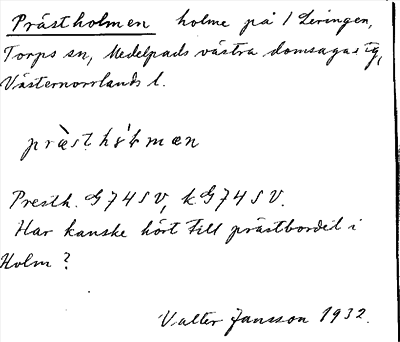 Prästholmen holme på / Leringen,
Torps sn, Medelpads västra domsagas tg,
Västernorrlands l.
præ̀st hólmæn
Presth. G 74 S V, k G 74 S V.
Har kanske hört till prästbordet i
Holm?
Valter Jansson 1932.